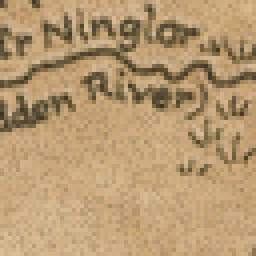 Ninglor
dden River)